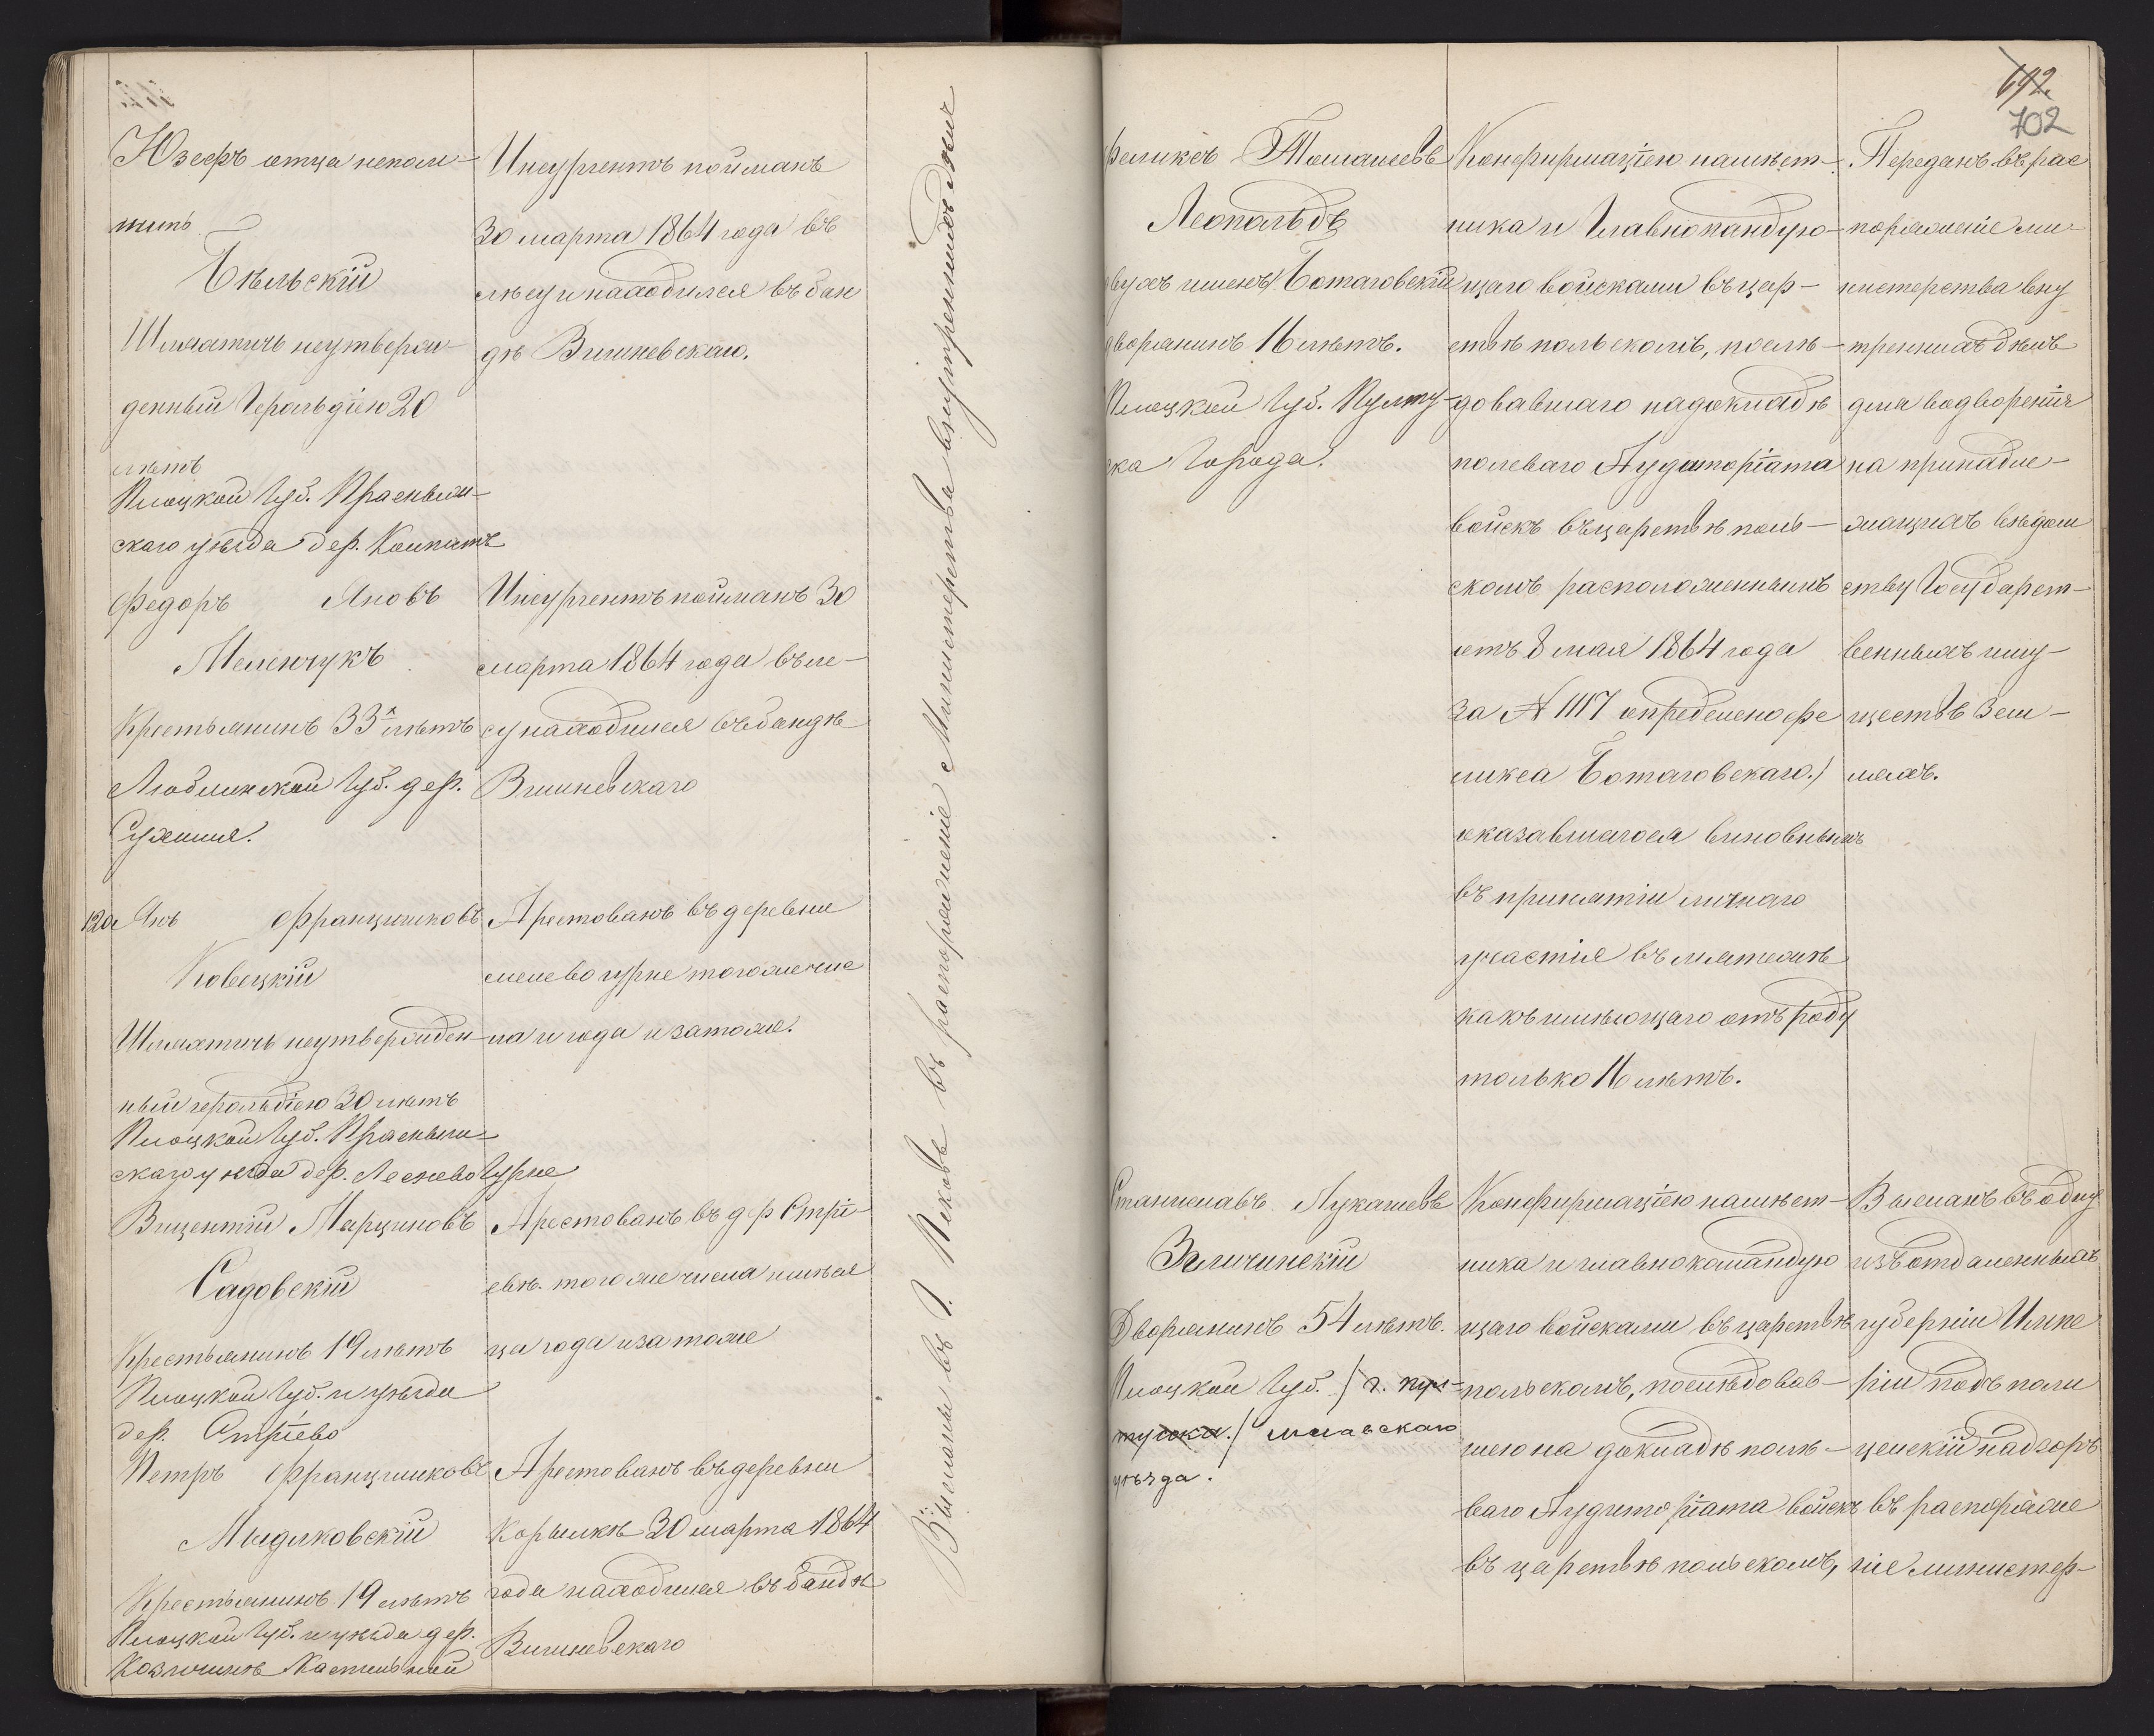 Юзефъ отца непом-
нитъ
Бѣльскій
Шляхтичь неутверж-
денный Герольдіею 20
лѣтъ
Плоцкой Губ. Прасныш-
скаго уѣзда дер.
Инсургентъ пойманъ
30 марта 1864 года въ
лѣсу и находился въ бан
дѣ Вишневскаго.
Федоръ Яновъ
Меленчукъ
Крестьянинъ 33х лѣтъ
Люблинской Губ. дер.
Инсургентъ пойманъ 30
марта 1864 года въ ле-
су находился въ бандѣ
Вишневскаго
120 Янъ Францишковъ
Ковецкій
Шляхтичь неутвержден-
ный герольдіею 30 лѣтъ
Плоцкой Губ. Прасныш-
скаго уѣзда дер. Леснево Гурне
Арестованъ въ деревни
леснево гурне того же чис
ла и года и за тоже.
Вицентій Марциновъ
Садовскій
Крестьянинъ 19 лѣтъ
Плоцкой Губ. и уѣзда
дер. Стрїево
Арестованъ въ дер Стрі-
евѣ. того же числа мѣся
ца года и за тоже
Петръ Францишковъ
Мыдлковскій
Крестьянинъ 19 лѣтъ
Плоцкой Губ. и уѣзда дер.
Арестованъ въ деревни
30 марта 1864
года находился въ бандѣ
Вишневскаго
Высланы въ Г. Псковъ въ распоряженіе Министерства внутреннихъ дѣлъ
692.
702
Феликсъ Томашевъ
Леопольдъ
двухъ именъ Ботаговскій
дворянинъ 16 лѣтъ.
Плоцкой Губ. Пулту-
ска Города.
Конфирмаціею намѣст-
ника и Главнокандую-
щаго войсками въ цар-
ствѣ польскомъ, послѣ-
довавшаго на докладѣ
полеваго Аудиторіата
войскъ въ царствѣ поль-
скомъ расположенныхъ
отъ 8 мая 1864 года
за № 1117 опредѣлено Фе
ликса Ботаговскаго)
оказавшагося виновнымъ
въ принятіи личнаго
участія въ мятежѣ
какъ имѣющаго отъ роду
только 16 лѣтъ.
Переданъ въ рас
поряженіе ми-
нистерства вну
треннихъ дѣлъ
для водворенія
на принадле-
жащихъ вѣдом
ству Государст-
венныхъ иму-
ществъ Зем-
ляхъ.
Станиславъ Лукашевъ
Зиличинскій
Дворянинъ 54 лѣтъ.
Плоцкой Губ. / г. пул-
туска. / млавскаго
уѣзда.
Конфирмаціею намѣст-
ника и главнокомандую
щаго войсками въ царствѣ
польскомъ, послѣдовав-
шею на докладѣ поле-
ваго Аудиторіата войскъ
въ царствѣ польскомъ,
Высланъ въ одну
изъ отдаленныхъ
губерніи Импе
ріи подъ поли
цейскій надзоръ
въ распоряже
ніе министер-